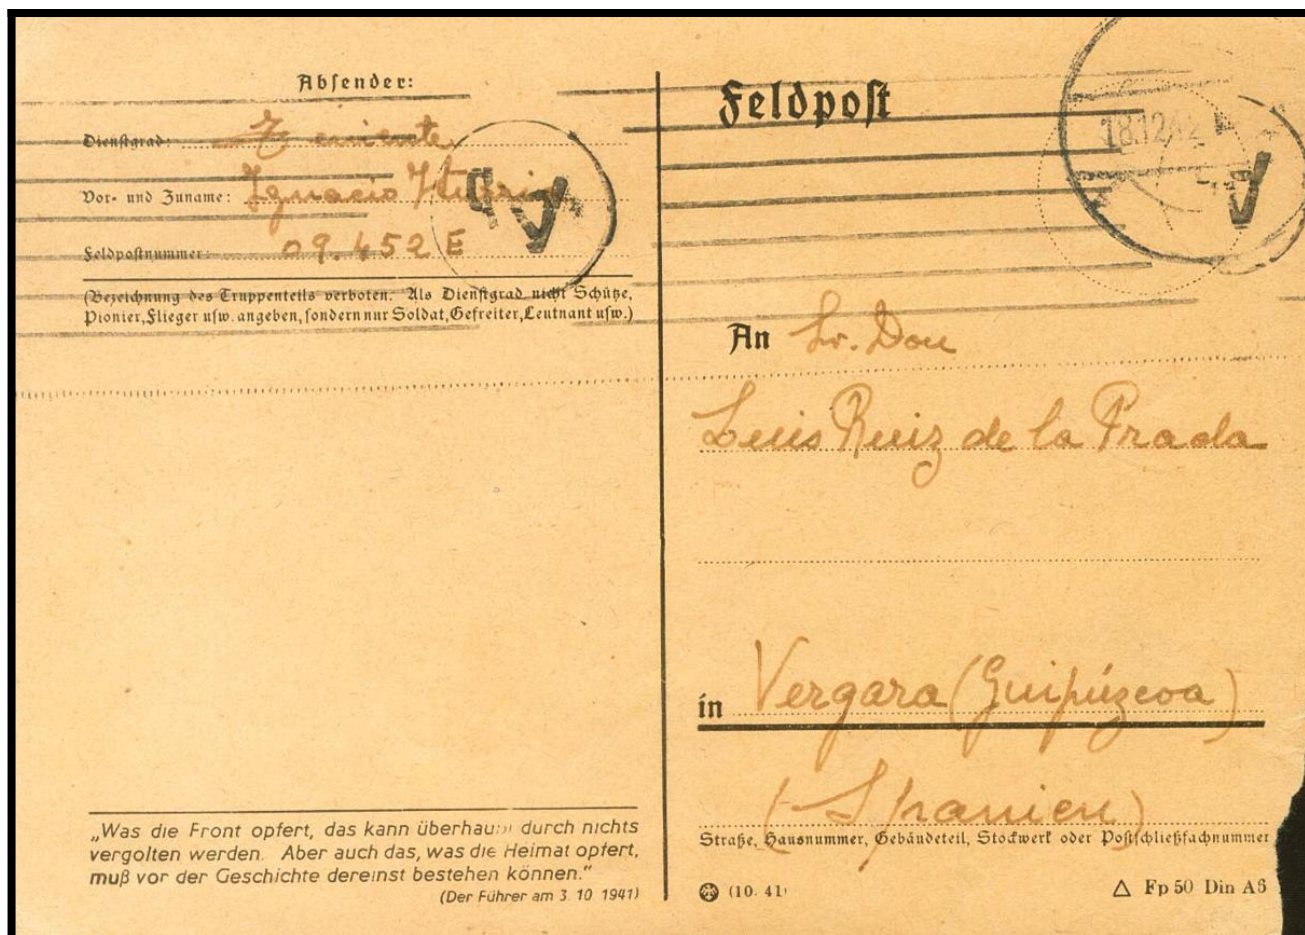 Absender:
Dienstgrad: Teniente
Vor- und Zuname: Ignacio
Feldpostnummer: 09.452 E
(Bezeichnung des Truppenteils verboten. Als Dienstgrad nicht Schütze,
Pionier, Flieger usw. angeben, sondern nur Soldat, Gefreiter, Leutnant usw.)
„Was die Front opfert, das kann überhaupt durch nichts
vergolten werden. Aber auch das, was die Heimat opfert,
muß vor der Geschichte dereinst bestehen können.“
(Der Führer am 3. 10. 1941)
Feldpost
18.12.42
An Sr. Don
Luis Ruiz de la Prada
in Vergara (Guipúzcoa)
(Spanien)
Straße, Hausnummer, Gebäudeteil, Stockwerk oder Postschließfachnummer
(10. 41)
Fp 50 Din A6